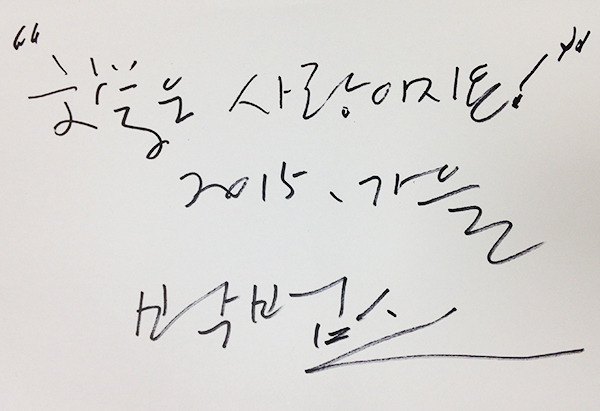 “ 사랑이지요! ”
2015, 가을
박범신